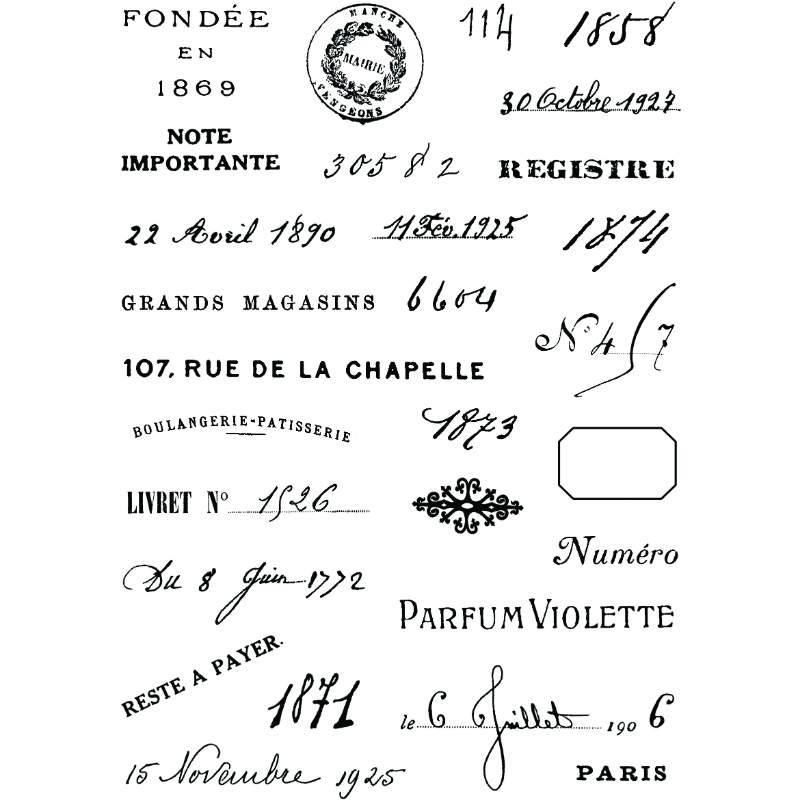 FONDÉE
EN
1869
MANCHE
MAIRIE
114
1858
30 Octobre 1927
NOTE
IMPORTANTE
30582
REGISTRE
22 Avril 1890
11 Fév. 1925
1874
GRANDS MAGASINS
6604
N° 4 57
107, RUE DE LA CHAPELLE
BOULANGERIE-PATISSERIE
1873
LIVRET N° 1526
Numéro
Du 8 Juin 1772
PARFUM VIOLETTE
RESTE A PAYER.
1871
le 6 Juillet 1906
15 Novembre 1925
PARIS